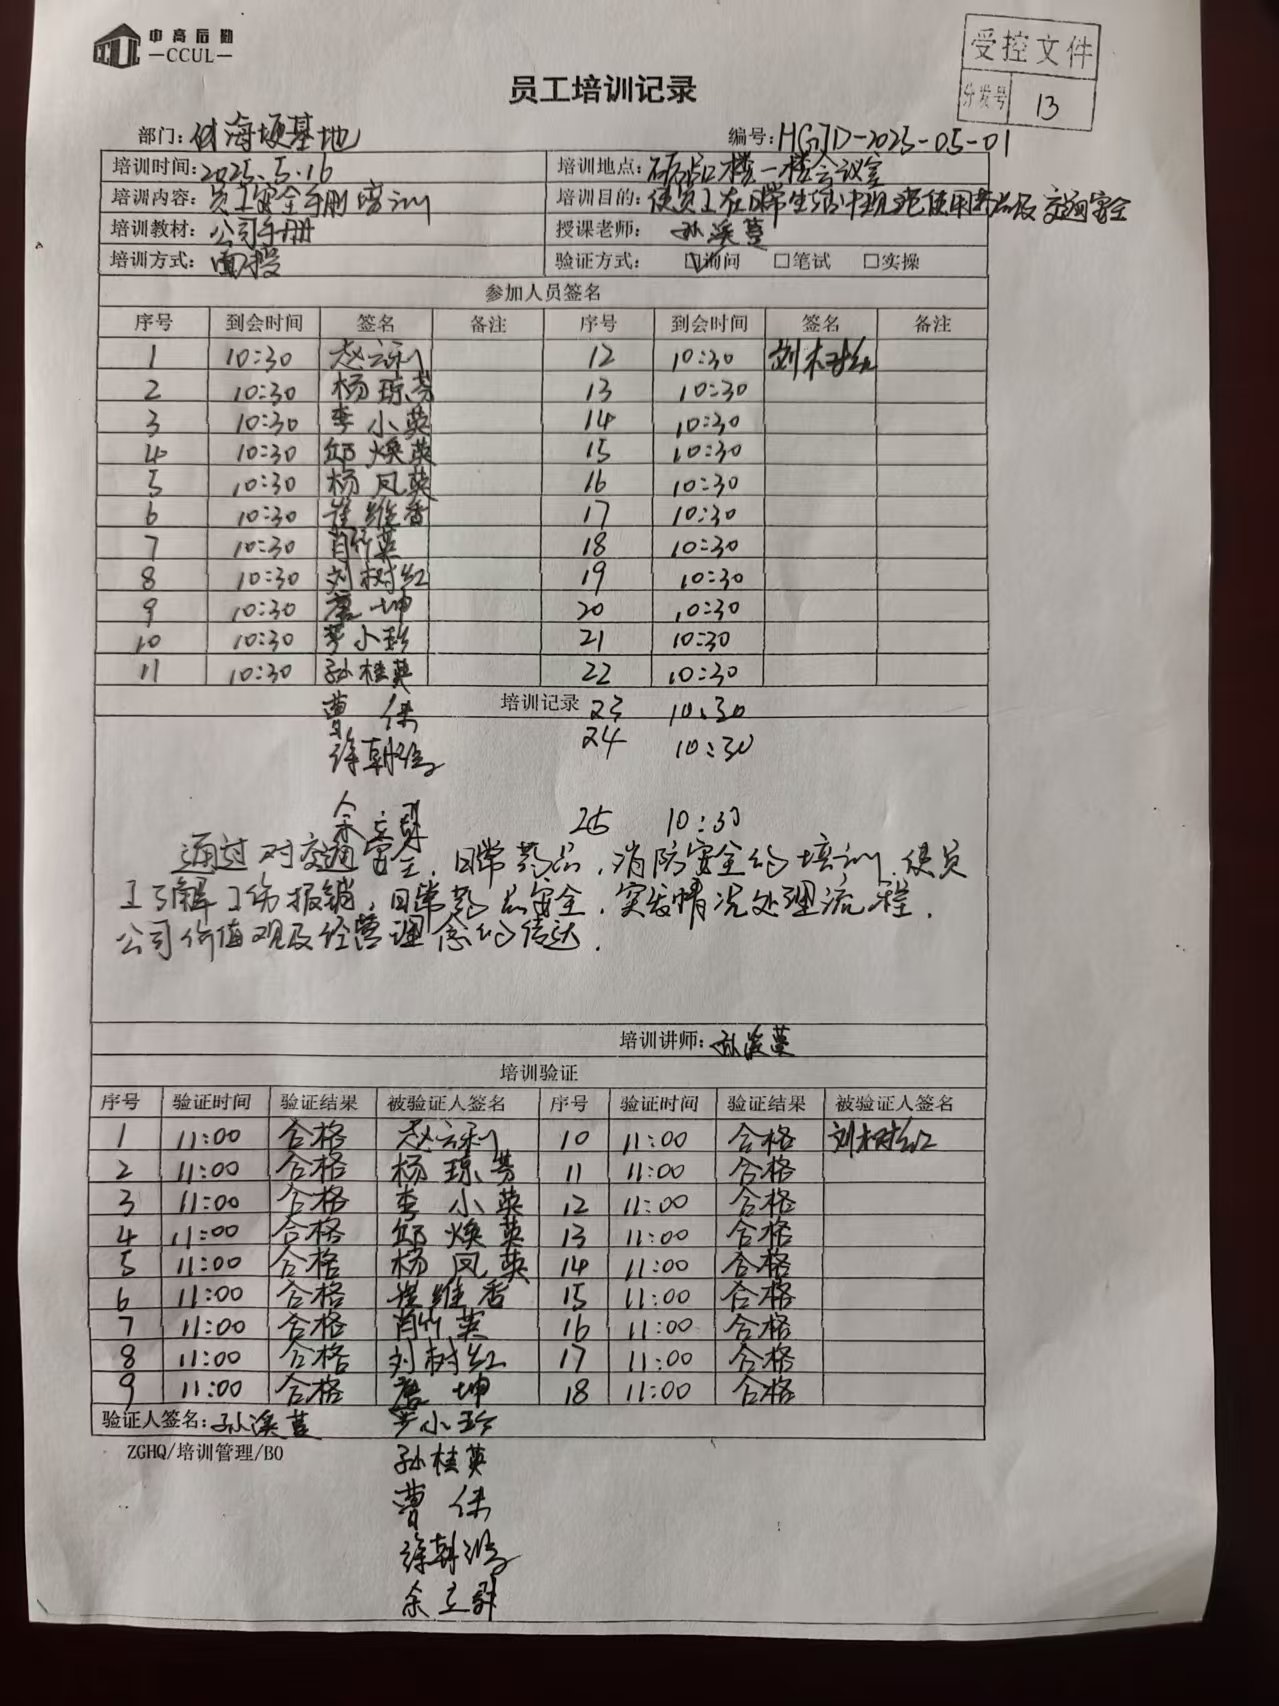 中高后勤
CCUL
受控文件
分发号 13
员工培训记录
部门: 海埂基地 编号: HGJD-2025-05-01
培训时间: 2025.5.16 培训地点: 楼一楼会议室
培训内容: 员工安全手册培训 培训目的: 使员工在日常生活中规范使用药品及交通安全
培训教材: 公司手册 授课老师: 孙溪蔓
培训方式: 面授 验证方式: ☑询问 □笔试 □实操
参加人员签名
序号 到会时间 签名 备注 序号 到会时间 签名 备注
1 10:30 赵云利 12 10:30 刘树红
2 10:30 杨琼芬 13 10:30
3 10:30 李小英 14 10:30
4 10:30 邱焕英 15 10:30
5 10:30 杨凤英 16 10:30
6 10:30 崔维香 17 10:30
7 10:30 肖竹英 18 10:30
8 10:30 刘树红 19 10:30
9 10:30 唐坤 20 10:30
10 10:30 李小珍 21 10:30
11 10:30 孙桂英 22 10:30
培训记录
曹保 23 10:30
徐朝 24 10:30
余立群 25 10:30
通过对交通安全,日常药品,消防安全的培训,使员
工了解工伤报销,日常药品安全,突发情况处理流程,
公司价值观及经营理念的传达.
培训讲师: 孙溪蔓
培训验证
序号 验证时间 验证结果 被验证人签名 序号 验证时间 验证结果 被验证人签名
1 11:00 合格 赵云利 10 11:00 合格 刘树红
2 11:00 合格 杨琼芬 11 11:00 合格
3 11:00 合格 李小英 12 11:00 合格
4 11:00 合格 邱焕英 13 11:00 合格
5 11:00 合格 杨凤英 14 11:00 合格
6 11:00 合格 崔维香 15 11:00 合格
7 11:00 合格 肖竹英 16 11:00 合格
8 11:00 合格 刘树红 17 11:00 合格
9 11:00 合格 唐坤 18 11:00 合格
验证人签名: 孙溪蔓 李小珍
ZGHQ/培训管理/B0
孙桂英
曹保
徐朝
余立群